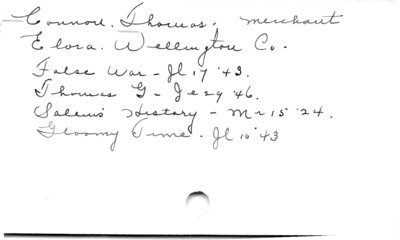 Connon. Thomas. merchant
Elora. Wellington Co.
False War - Jl 17 '43.
Thomas G - Je 29 '46.
Salem's History - Mr 15 '24.
Gloomy Time. Jl 10 '43